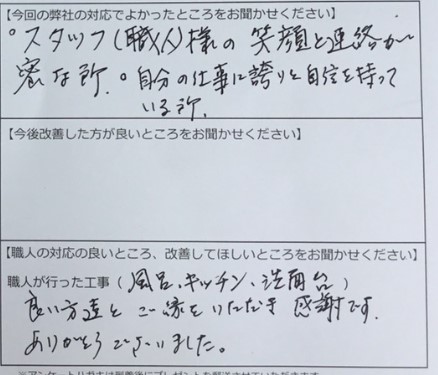 【今回の弊社の対応でよかったところをお聞かせください】
°スタッフ(職人)様の笑顔と連絡が
密な所.°自分の仕事に誇りと自信を持って
いる所.
【今後改善した方が良いところをお聞かせください】
【職人の対応の良いところ、改善してほしいところをお聞かせください】
職人が行った工事（風呂、キッチン、洗面台）
良い方達とご縁をいただき感謝です.
ありがとうございました。
※アンケートハガキは到着後にプレゼントを郵送させていただきます